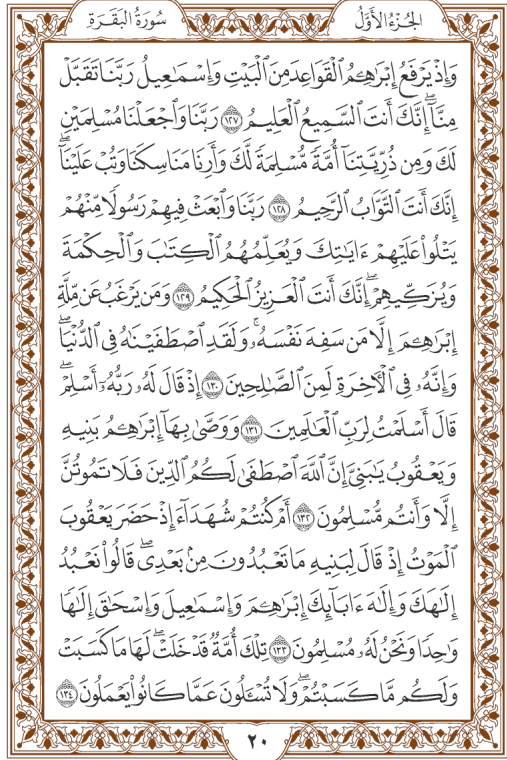 الجُزْءُ الأَوَّلُ
سُورَةُ البَقَرَةِ
وَإِذْ يَرْفَعُ إِبْرَٰهِـۧمُ ٱلْقَوَاعِدَ مِنَ ٱلْبَيْتِ وَإِسْمَـٰعِيلُ رَبَّنَا تَقَبَّلْ
مِنَّآ ۖ إِنَّكَ أَنتَ ٱلسَّمِيعُ ٱلْعَلِيمُ ١٢٧ رَبَّنَا وَٱجْعَلْنَا مُسْلِمَيْنِ
لَكَ وَمِن ذُرِّيَّتِنَآ أُمَّةً مُّسْلِمَةً لَّكَ وَأَرِنَا مَنَاسِكَنَا وَتُبْ عَلَيْنَآ ۖ
إِنَّكَ أَنتَ ٱلتَّوَّابُ ٱلرَّحِيمُ ١٢٨ رَبَّنَا وَٱبْعَثْ فِيهِمْ رَسُولًا مِّنْهُمْ
يَتْلُوا۟ عَلَيْهِمْ ءَايَـٰتِكَ وَيُعَلِّمُهُمُ ٱلْكِتَـٰبَ وَٱلْحِكْمَةَ
وَيُزَكِّيهِمْ ۚ إِنَّكَ أَنتَ ٱلْعَزِيزُ ٱلْحَكِيمُ ١٢٩ وَمَن يَرْغَبُ عَن مِّلَّةِ
إِبْرَٰهِـۧمَ إِلَّا مَن سَفِهَ نَفْسَهُۥ ۚ وَلَقَدِ ٱصْطَفَيْنَـٰهُ فِى ٱلدُّنْيَا ۖ
وَإِنَّهُۥ فِى ٱلْـَٔاخِرَةِ لَمِنَ ٱلصَّـٰلِحِينَ ١٣٠ إِذْ قَالَ لَهُۥ رَبُّهُۥٓ أَسْلِمْ ۖ
قَالَ أَسْلَمْتُ لِرَبِّ ٱلْعَـٰلَمِينَ ١٣١ وَوَصَّىٰ بِهَآ إِبْرَٰهِـۧمُ بَنِيهِ
وَيَعْقُوبُ يَـٰبَنِىَّ إِنَّ ٱللَّهَ ٱصْطَفَىٰ لَكُمُ ٱلدِّينَ فَلَا تَمُوتُنَّ
إِلَّا وَأَنتُم مُّسْلِمُونَ ١٣٢ أَمْ كُنتُمْ شُهَدَآءَ إِذْ حَضَرَ يَعْقُوبَ
ٱلْمَوْتُ إِذْ قَالَ لِبَنِيهِ مَا تَعْبُدُونَ مِنۢ بَعْدِى ۖ قَالُوا۟ نَعْبُدُ
إِلَـٰهَكَ وَإِلَـٰهَ ءَابَآئِكَ إِبْرَٰهِـۧمَ وَإِسْمَـٰعِيلَ وَإِسْحَـٰقَ إِلَـٰهًا
وَٰحِدًا وَنَحْنُ لَهُۥ مُسْلِمُونَ ١٣٣ تِلْكَ أُمَّةٌ قَدْ خَلَتْ ۖ لَهَا مَا كَسَبَتْ
وَلَكُم مَّا كَسَبْتُمْ ۖ وَلَا تُسْـَٔلُونَ عَمَّا كَانُوا۟ يَعْمَلُونَ ١٣٤
٢٠